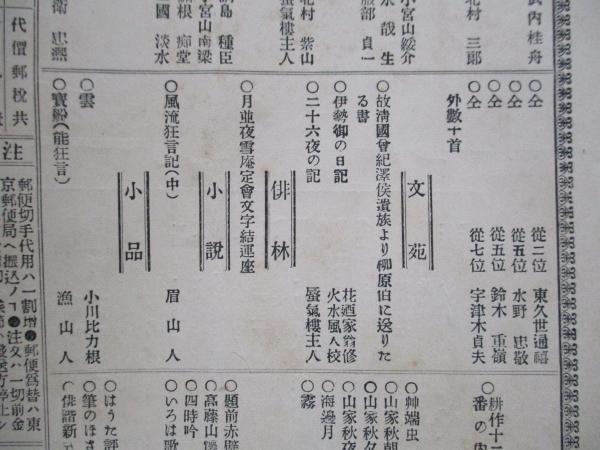 武内桂舟
北村 三郎
小宮山綏介
水哉生
服部 貞一
北村 紫山
蜃氣樓主人
副島 種臣
小宮山南梁
關根 痴堂
國 淡水
衛 忠凞
○仝 從二位 東久世通禧
○仝 從五位 水野 忠敬
○仝 從五位 鈴木 重嶺
○仝 從七位 宇津木貞夫
外數十首
文苑
○故淸國曾紀澤侯遺族より柳原伯に送りた
る書
○伊勢御の日記 花廼家翁修 火水風人校
○二十六夜の記 蜃氣樓主人
俳林
○月並夜雪庵定會文字結運座
小說
○風流狂言記(中) 眉山人
小品
○雲 小川比力根
○寶殿(能狂言) 漁山人
○耕作十二
番の內
○艸端虫
○山家秋朝
○山家秋夕
○山家秋夜
○海邊月
○霧
○題前赤壁
○高藤山
○四時吟
○いろは歌
○はうた評
○筆のほさ
○俳諧新
代價郵稅共
注
郵便切手代用ハ一割增●郵便爲替ハ東
京郵便局ヘ振込ノヿ●注文ハ一切前金